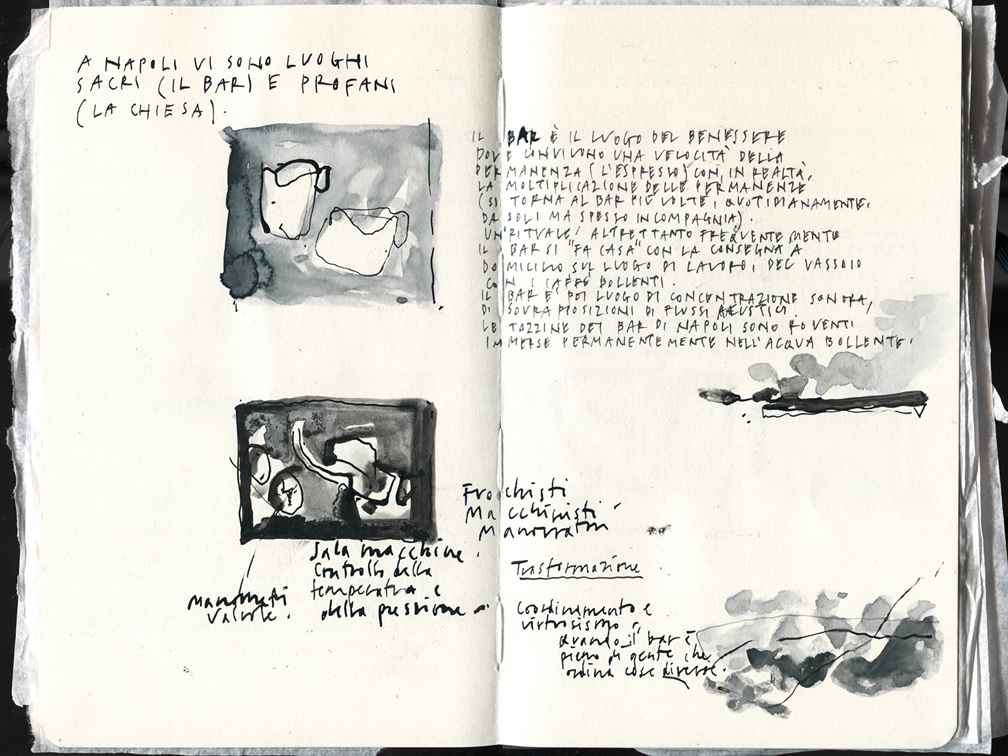 A NAPOLI VI SONO LUOGHI
SACRI (IL BAR) E PROFANI
(LA CHIESA).
IL BAR È IL LUOGO DEL BENESSERE
DOVE CONVIVONO UNA VELOCITÀ DELLA
PERMANENZA (L'ESPRESSO) CON, IN REALTÀ,
LA MOLTIPLICAZIONE DELLE PERMANENZE
(SI TORNA AL BAR PIÙ VOLTE, QUOTIDIANAMENTE,
DA SOLI MA SPESSO IN COMPAGNIA).
UN'RITUALE! ALTRETTANTO FREQUENTEMENTE
IL BAR SI "FA CASA" CON LA CONSEGNA A
DOMICILIO SUL LUOGO DI LAVORO, DEL VASSOIO
CON I CAFFÈ BOLLENTI.
IL BAR E' POI LUOGO DI CONCENTRAZIONE SONORA,
DI SOVRAPPOSIZIONI DI FLUSSI ACUSTICI.
LE TAZZINE DEI BAR DI NAPOLI SONO ROVENTI
IMMERSE PERMANENTEMENTE NELL'ACQUA BOLLENTE.
Fuochisti
Macchinisti
Manovratori
Sala macchine.
Controllo della
temperatura e
della pressione
Manometri
Valvole.
Trasformazione.
Coordinamento e
virtuosismo
Quando il bar è
pieno di gente che
ordina cose diverse.